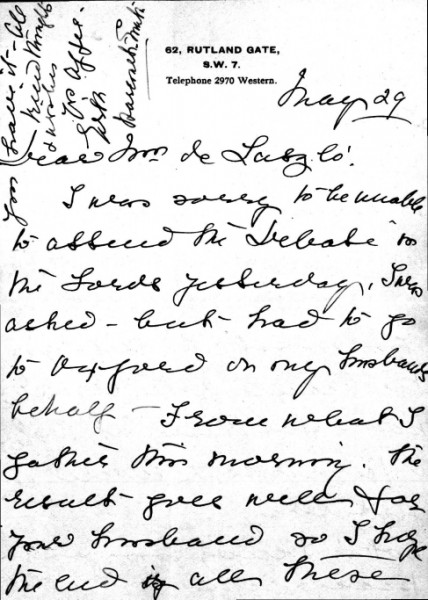 62, RUTLAND GATE,
S.W. 7.
Telephone 2970 Western.
May 29
Dear Mrs de László.
I was sorry to be unable
to attend the Debate in
the Lords yesterday, I was
asked – but had to go
to Oxford on my husbands
behalf – From what I
gather this morning. the
result goes well for
your husband so I hope
the end of all these
you have it – all
kind thoughts
& wishes
Yrs affec.